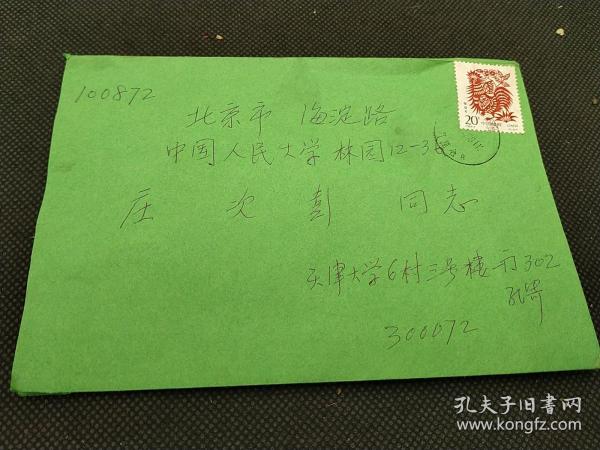 100872
20分
北京市 海淀路
中国人民大学 林园12-3
庄 次 彭 同志
天津大学6村三号楼 302
孔寄
300072
孔夫子旧书网
www.kongfz.com